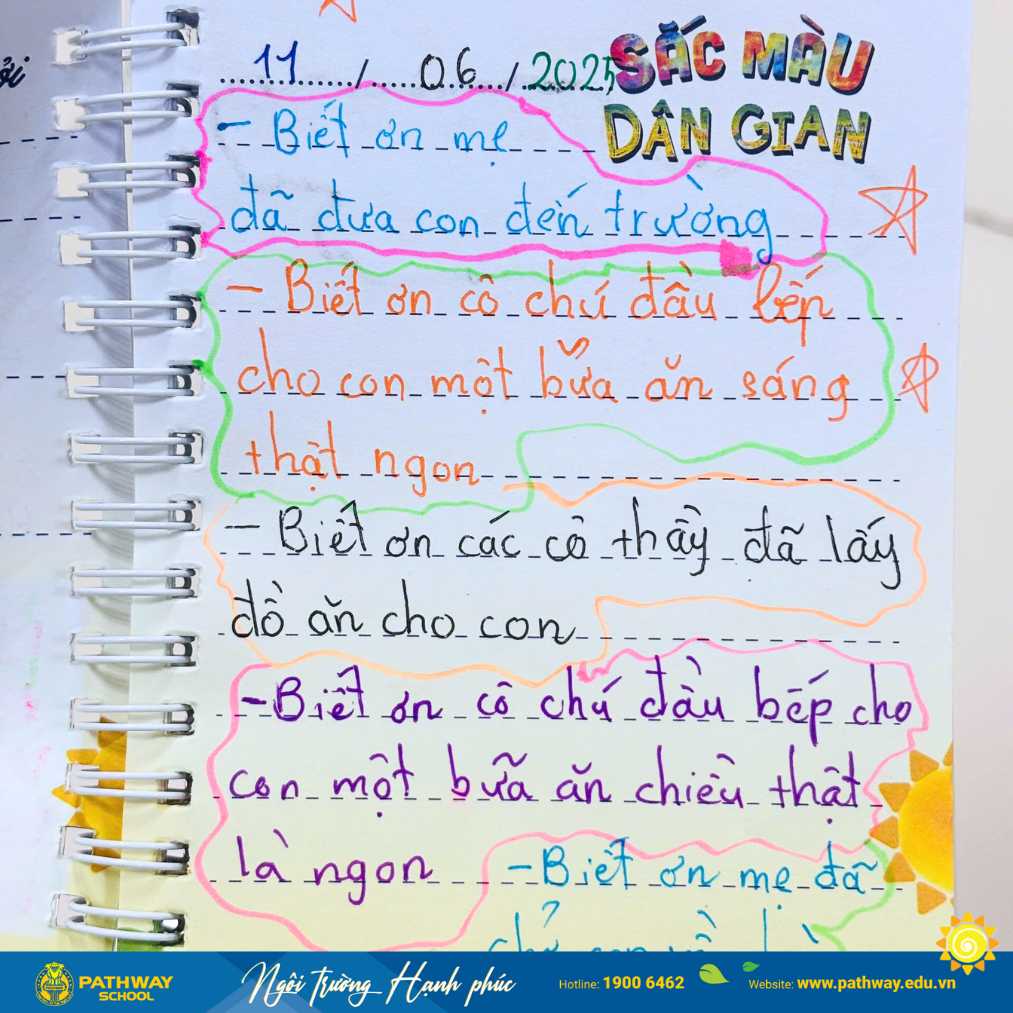 11/06/2025
SẮC MÀU
DÂN GIAN
- Biết ơn mẹ
đã đưa con đến trường
- Biết ơn cô chú đầu bếp
cho con một bữa ăn sáng
thật ngon
- Biết ơn các cô thầy đã lấy
đồ ăn cho con
- Biết ơn cô chú đầu bếp cho
con một bữa ăn chiều thật
là ngon
- Biết ơn mẹ đã
PATHWAY
SCHOOL
Ngôi Trường Hạnh phúc
Hotline: 1900 6462
Website: www.pathway.edu.vn